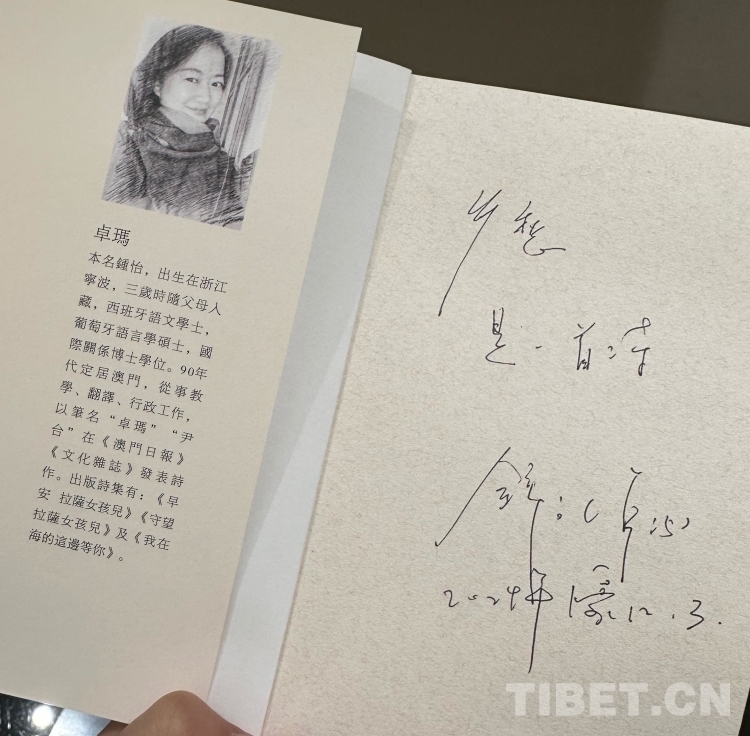 卓瑪
本名鍾怡，出生在浙江
寧波，三歲時隨父母入
藏，西班牙語文學士，
葡萄牙語言學碩士，國
際關係博士學位。90年
代定居澳門，從事教
學、翻譯、行政工作，
以筆名“卓瑪”“尹
台”在《澳門日報》
《文化雜誌》發表詩
作。出版詩集有：《早
安 拉薩女孩兒》《守望
拉薩女孩兒》及《我在
海的這邊等你》。
是一首詩
2024年 濠 12.3.
TIBET.CN